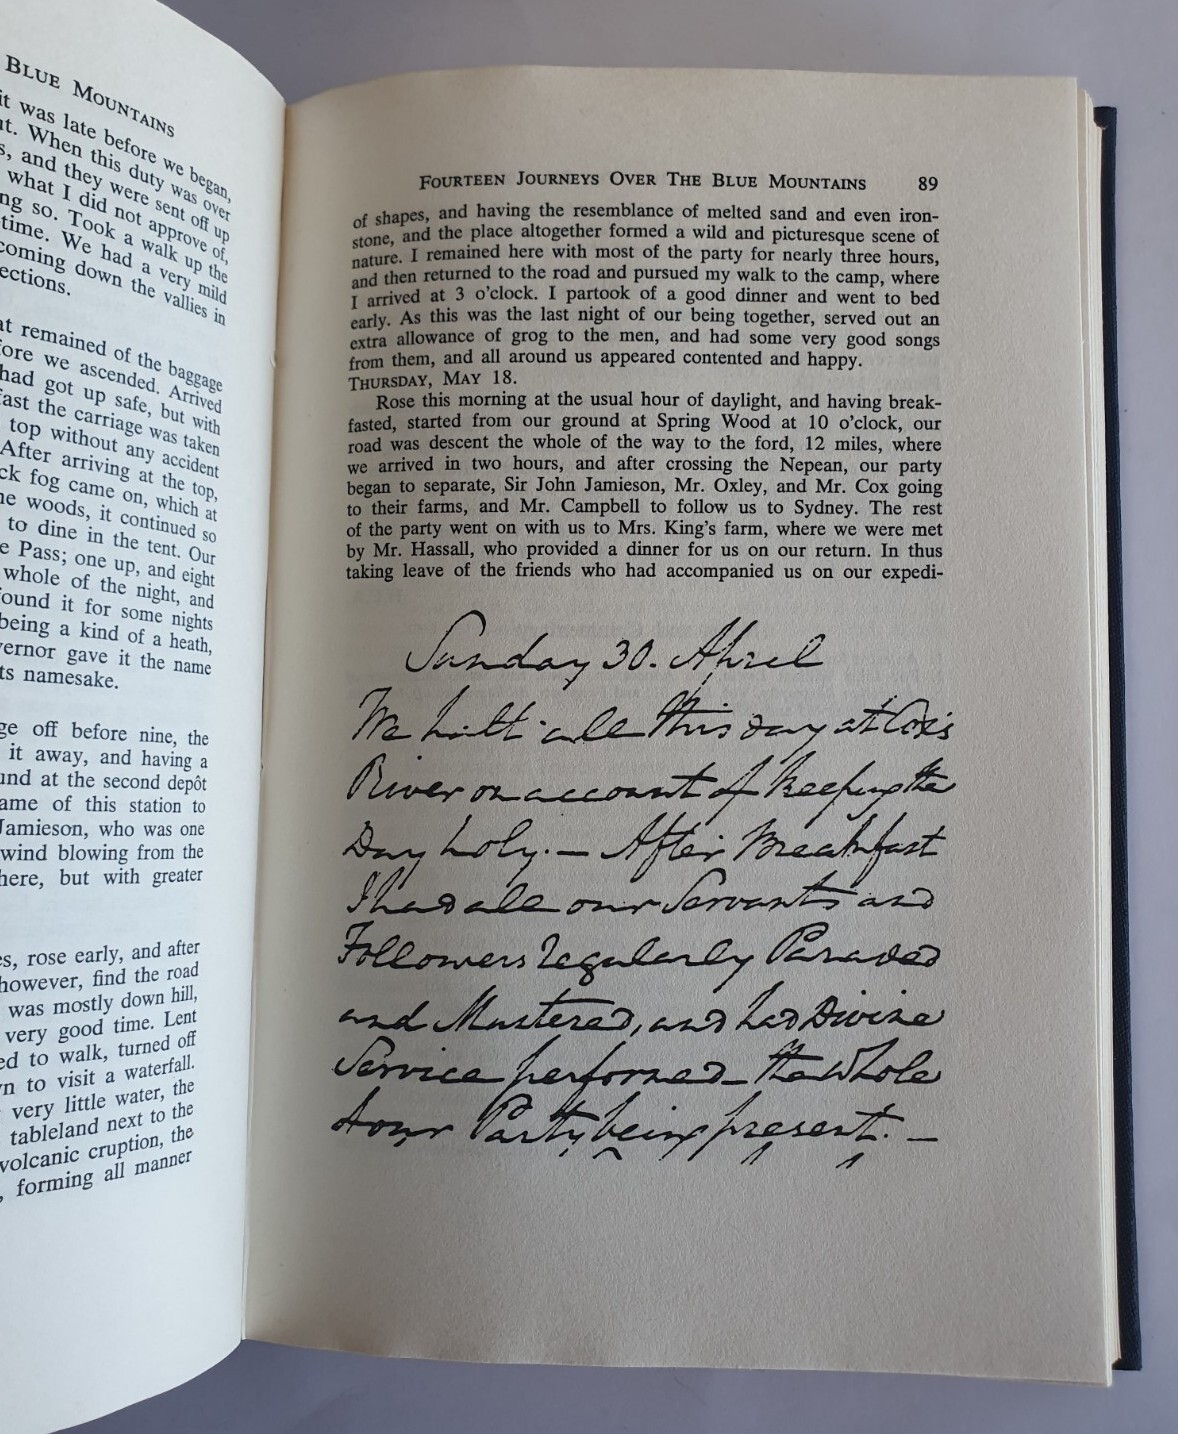 BLUE MOUNTAINS
it was late before we began,
t. When this duty was over
s, and they were sent off up
what I did not approve of,
ng so. Took a walk up the
time. We had a very mild
coming down the vallies in
ections.
at remained of the baggage
ore we ascended. Arrived
had got up safe, but with
fast the carriage was taken
top without any accident
After arriving at the top,
ck fog came on, which at
he woods, it continued so
to dine in the tent. Our
e Pass; one up, and eight
whole of the night, and
ound it for some nights
being a kind of a heath,
vernor gave it the name
ts namesake.
ge off before nine, the
it away, and having a
und at the second depôt
ame of this station to
Jamieson, who was one
wind blowing from the
here, but with greater
es, rose early, and after
however, find the road
was mostly down hill,
very good time. Lent
ed to walk, turned off
wn to visit a waterfall.
very little water, the
tableland next to the
volcanic cruption, the
, forming all manner
FOURTEEN JOURNEYS OVER THE BLUE MOUNTAINS 89
of shapes, and having the resemblance of melted sand and even iron-
stone, and the place altogether formed a wild and picturesque scene of
nature. I remained here with most of the party for nearly three hours,
and then returned to the road and pursued my walk to the camp, where
I arrived at 3 o'clock. I partook of a good dinner and went to bed
early. As this was the last night of our being together, served out an
extra allowance of grog to the men, and had some very good songs
from them, and all around us appeared contented and happy.
THURSDAY, MAY 18.
Rose this morning at the usual hour of daylight, and having break-
fasted, started from our ground at Spring Wood at 10 o'clock, our
road was descent the whole of the way to the ford, 12 miles, where
we arrived in two hours, and after crossing the Nepean, our party
began to separate, Sir John Jamieson, Mr. Oxley, and Mr. Cox going
to their farms, and Mr. Campbell to follow us to Sydney. The rest
of the party went on with us to Mrs. King's farm, where we were met
by Mr. Hassall, who provided a dinner for us on our return. In thus
taking leave of the friends who had accompanied us on our expedi-
Sunday 30. April
We halt all this day at Cox's
River on account of keeping the
Day holy. — After Breakfast
I had all our Servants and
Followers regularly Paraded
and Mustered, and had Divine
Service performed — the whole
of our Party being present. —